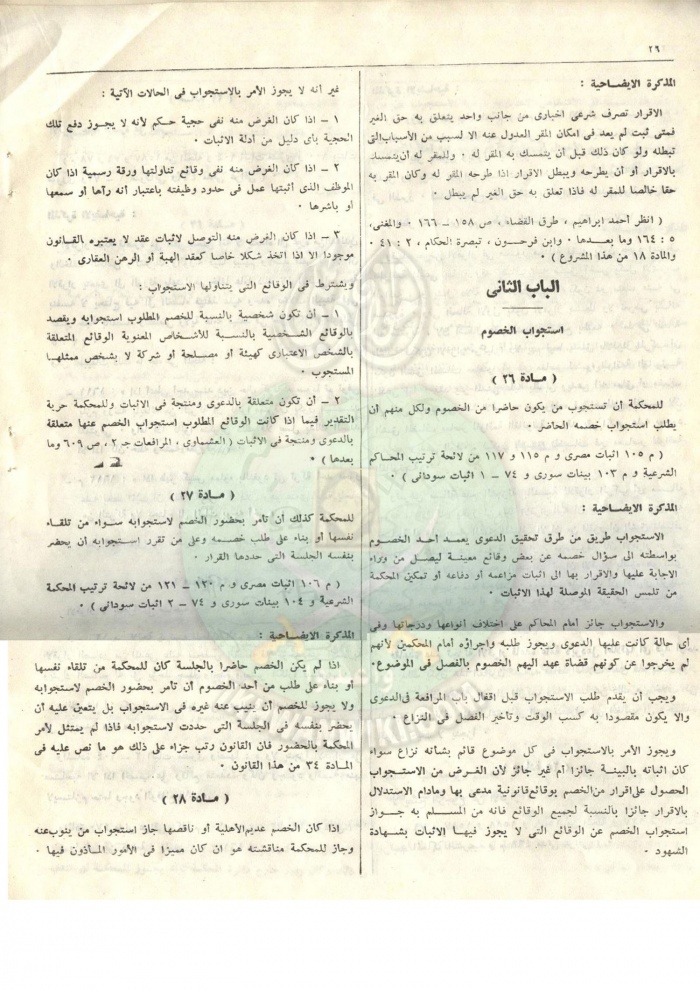 ٢٦
المذكرة الايضاحية :
الاقرار تصرف شرعى اخبارى من جانب واحد يتعلق به حق الغير
فمتى ثبت لم يعد فى امكان المقر العدول عنه الا لسبب من الأسباب التى
تبطله ولو كان ذلك قبل أن يتمسك به المقر له ٠ وللمقر له أن يتمسك
بالاقرار أو أن يطرحه ويبطل الاقرار اذا طرحه المقر له وكان المقر به
حقا خالصا للمقر له فاذا تعلق به حق الغير لم يبطل ٠
( انظر أحمد ابراهيم ، طرق القضاء ، ص ١٥٨ – ١٦٦ ٠ والمغنى،
٥ : ١٦٤ وما بعدها ٠ وابن فرحون ، تبصرة الحكام ، ٢ : ٤١ ٠
والمادة ١٨ من هذا المشروع ) ٠
الباب الثانى
استجواب الخصوم
( مادة ٢٦ )
للمحكمة أن تستجوب من يكون حاضرا من الخصوم ولكل منهم أن
يطلب استجواب خصمه الحاضر ٠
( م ١٠٥ اثبات مصرى و م ١١٥ و ١١٧ من لائحة ترتيب المحاكم
الشرعية و م ١٠٣ بينات سورى و ٧٤ – ١ اثبات سودانى ) ٠
المذكرة الايضاحية :
الاستجواب طريق من طرق تحقيق الدعوى يعمد أحد الخصوم
بواسطته الى سؤال خصمه عن بعض وقائع معينة ليصل من وراء
الاجابة عليها والاقرار بها الى اثبات مزاعمه أو دفاعه أو تمكين المحكمة
من تلمس الحقيقة الموصلة لهذا الاثبات ٠
والاستجواب جائز أمام المحاكم على اختلاف أنواعها ودرجاتها وفى
أى حالة كانت عليها الدعوى ويجوز طلبه واجراؤه أمام المحكمين لأنهم
لم يخرجوا عن كونهم قضاة عهد اليهم الخصوم بالفصل فى الموضوع٠
ويجب أن يقدم طلب الاستجواب قبل اقفال باب المرافعة فى الدعوى
والا يكون مقصودا به كسب الوقت وتأخير الفصل فى النزاع ٠
ويجوز الأمر بالاستجواب فى كل موضوع قائم بشأنه نزاع سواء
كان اثباته بالبينة جائزا أم غير جائز لأن الغرض من الاستجواب
الحصول على اقرار من الخصم بوقائع قانونية مدعى بها ومادام الاستدلال
بالاقرار جائزا بالنسبة لجميع الوقائع فانه من المسلم به جواز
استجواب الخصم عن الوقائع التى لا يجوز فيها الاثبات بشهادة
الشهود ٠
غير أنه لا يجوز الأمر بالاستجواب فى الحالات الآتية :
١ – اذا كان الغرض منه نفى حجية حكم لأنه لا يجوز دفع تلك
الحجية بأى دليل من أدلة الاثبات ٠
٢ – اذا كان الغرض منه نفى وقائع تناولتها ورقة رسمية اذا كان
الموظف الذى أثبتها عمل فى حدود وظيفته باعتبار أنه رآها أو سمعها
أو باشرها ٠
٣ – اذا كان الغرض منه التوصل لاثبات عقد لا يعتبره القانون
موجودا الا اذا اتخذ شكلا خاصا كعقد الهبة أو الرهن العقارى ٠
ويشترط فى الوقائع التى يتناولها الاستجواب :
١ – أن تكون شخصية بالنسبة للخصم المطلوب استجوابه ويقصد
بالوقائع الشخصية بالنسبة للأشخاص المعنوية الوقائع المتعلقة
بالشخص الاعتبارى كهيئة أو مصلحة أو شركة لا بشخص ممثلها
المستجوب ٠
٢ – أن تكون متعلقة بالدعوى ومنتجة فى الاثبات وللمحكمة حرية
التقدير فيما اذا كانت الوقائع المطلوب استجواب الخصم عنها متعلقة
بالدعوى ومنتجة فى الاثبات ( العشماوى ، المرافعات جـ ٢ ، ص ٦٠٩ وما
بعدها ) ٠
( مادة ٢٧ )
للمحكمة كذلك أن تأمر بحضور الخصم لاستجوابه سواء من تلقاء
نفسها أو بناء على طلب خصمه وعلى من تقرر استجوابه أن يحضر
بنفسه الجلسة التى حددها القرار ٠
( م ١٠٦ اثبات مصرى و م ١٢٠ – ١٢١ من لائحة ترتيب المحكمة
الشرعية و ١٠٤ بينات سورى و ٧٤ – ٢ اثبات سودانى ) ٠
المذكرة الايضاحية :
اذا لم يكن الخصم حاضرا بالجلسة كان للمحكمة من تلقاء نفسها
أو بناء على طلب من أحد الخصوم أن تأمر بحضور الخصم لاستجوابه
ولا يجوز للخصم أن ينيب عنه غيره فى الاستجواب بل يتعين عليه أن
يحضر بنفسه فى الجلسة التى حددت لاستجوابه فاذا لم يمتثل لأمر
المحكمة بالحضور فان القانون رتب جزاء على ذلك هو ما نص عليه فى
المادة ٣٤ من هذا القانون ٠
( مادة ٢٨ )
اذا كان الخصم عديم الأهلية أو ناقصها جاز استجواب من ينوب عنه
وجاز للمحكمة مناقشته هو ان كان مميزا فى الأمور المأذون فيها ٠